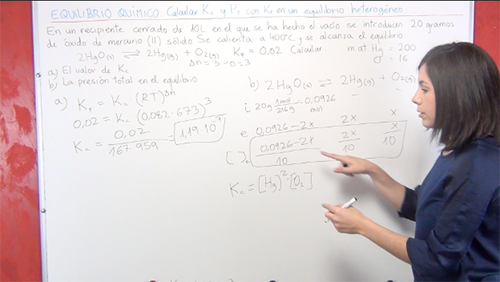 EQUILIBRIO QUÍMICO. Calcular Kc y PT con Kp en un equilibrio heterogéneo
En un recipiente cerrado de 10L en el que se ha hecho el vacío se introducen 20 gramos
de óxido de mercurio (II) sólido. Se calienta a 400ºC y se alcanza el equilibrio
2HgO(s) ⇌ 2Hg(g) + O2(g) Kp = 0,02 Calcular
mat Hg = 200
O = 16
a) El valor de Kc
Δn = 3 - 0 = 3
b) La presión total en el equilibrio
a) Kp = Kc (RT)^Δn
0,02 = Kc (0,082·673)^3
Kc = 0,02 / 167 959 = 1,19·10^-7
b) 2HgO(s) ⇌ 2Hg(g) + O2(g)
i. 20g 1mol/216g = 0,0926 mol - -
2x x
e 0,0926-2x 2x x
[ ]e 0,0926-2x/10 2x/10 x/10
Kc = [Hg]^2·[O2]